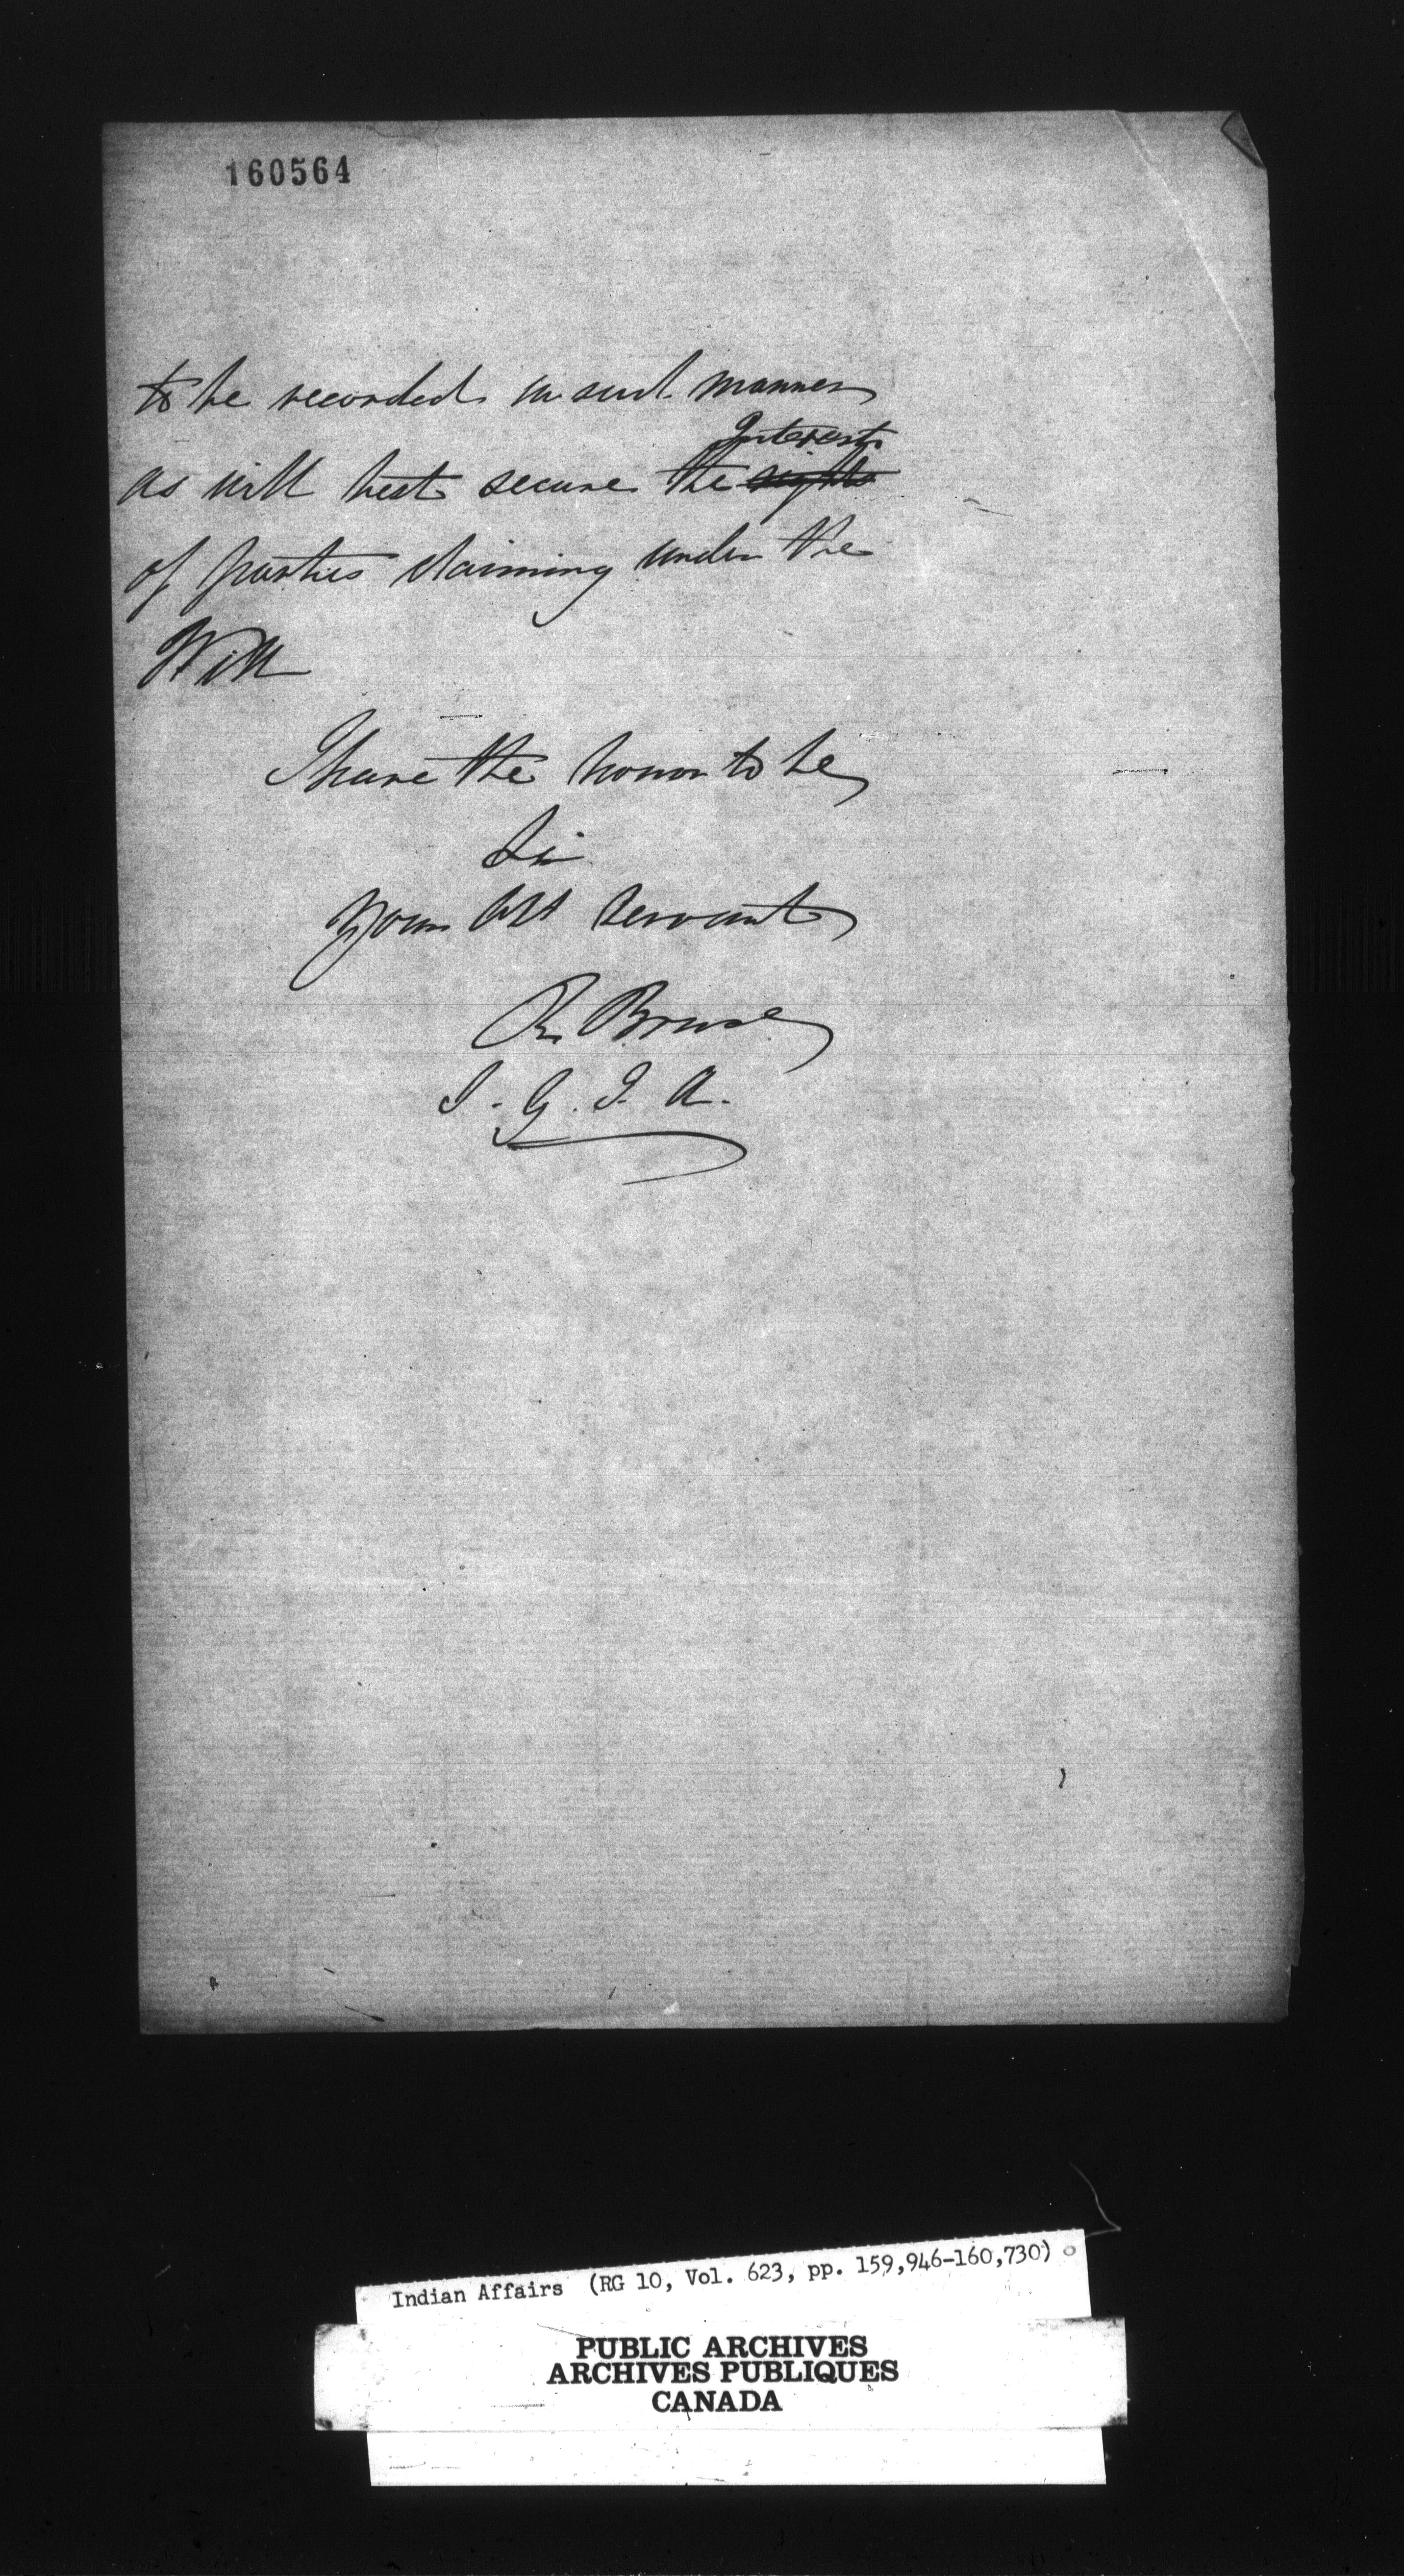 160564
to be recorded in such manner
Interests
as will best secure the rights
of parties claiming under the
Will
I have the honor to be
Sir
Your Obt Servant
R. Bruce
S. G. I. A.
Indian Affairs (RG 10, Vol. 623, pp. 159,946-160,730)
PUBLIC ARCHIVES
ARCHIVES PUBLIQUES
CANADA